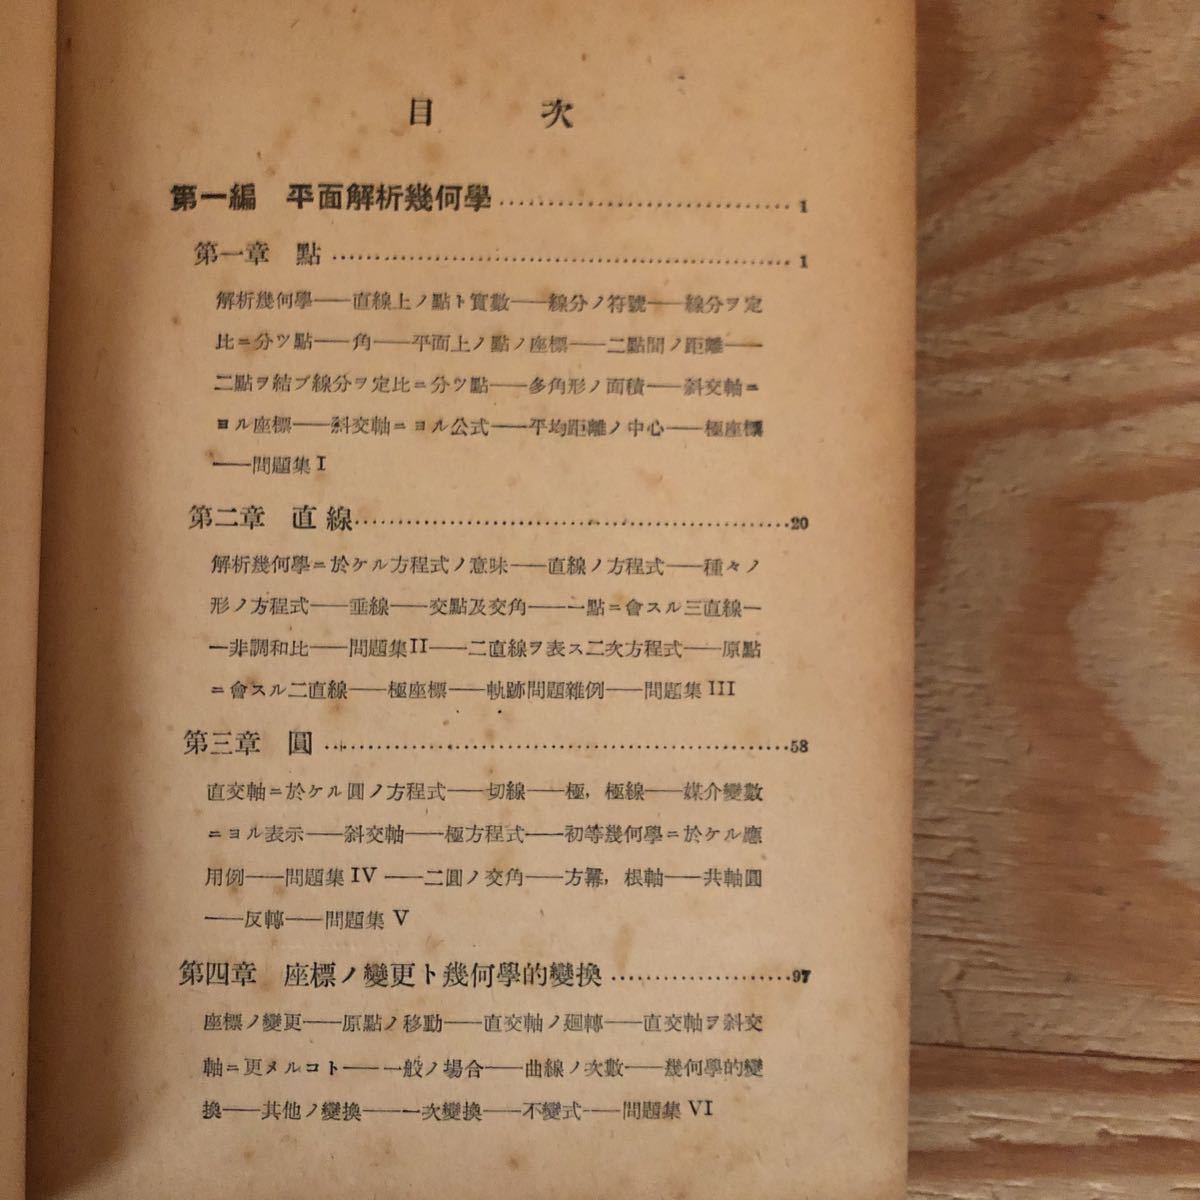 目次
第一編 平面解析幾何學……………………………1
第一章 點……………………………………………1
解析幾何學――直線上ノ點ト實數――線分ノ符號――線分ヲ定
比ニ分ツ點――角――平面上ノ點ノ座標――二點間ノ距離――
二點ヲ結ブ線分ヲ定比ニ分ツ點――多角形ノ面積――斜交軸ニ
ヨル座標――斜交軸ニヨル公式――平均距離ノ中心――極座標
――問題集 I
第二章 直線…………………………………………20
解析幾何學ニ於ケル方程式ノ意味――直線ノ方程式――種々ノ
形ノ方程式――垂線――交點及交角――一點ニ會スル三直線―
―非調和比――問題集 II――二直線ヲ表ス二次方程式――原點
ニ會スル二直線――極座標――軌跡問題雜例――問題集 III
第三章 圓……………………………………………58
直交軸ニ於ケル圓ノ方程式――切線――極, 極線――媒介變數
ニヨル表示――斜交軸――極方程式――初等幾何學ニ於ケル應
用例――問題集 IV――二圓ノ交角――方冪, 根軸――共軸圓
――反轉――問題集 V
第四章 座標ノ變更ト幾何學的變換………………97
座標ノ變更――原點ノ移動――直交軸ノ廻轉――直交軸ヲ斜交
軸ニ更メルコト――一般ノ場合――曲線ノ次數――幾何學的變
換――其他ノ變換――一次變換――不變式――問題集 VI